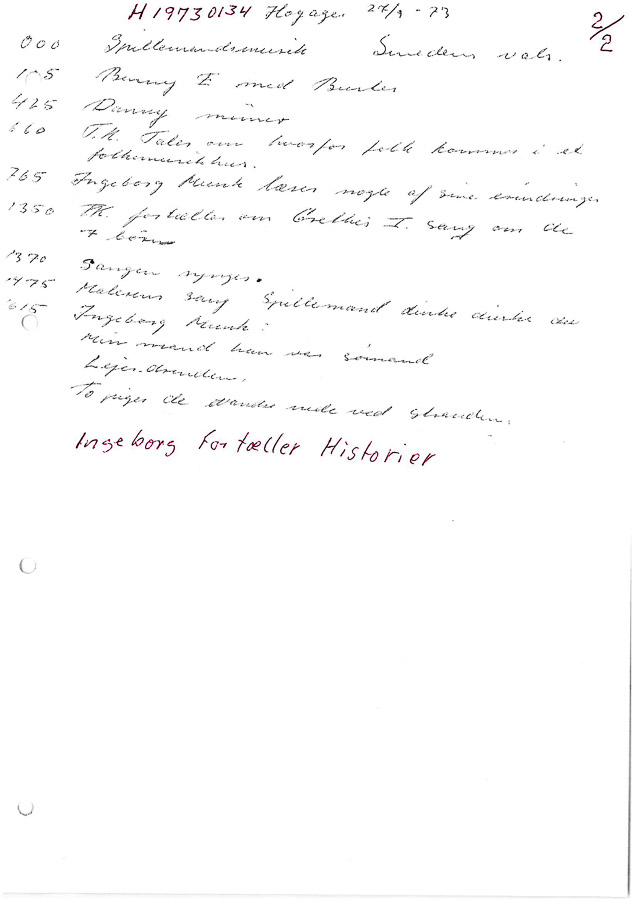 H 19730134 Hogager 27/9 - 73
2/2
000 Spillemandsmusik Smedens vals.
105 Benny E med Buster
425 Danny
660 T.K. Taler om hvorfor folk kommer i et
folkemusikhus.
765 Ingeborg Munk læser nogle af sine erindringer
1350 TK. fortæller om Grethes I. sang om de
7 børn
1370 Sangen synges.
1475 sang Spillemand dirke dirke du
615 Ingeborg Munk:
Min mand han var sømand
Lejesvenden.
To piger de vandre nede ved stranden.
Ingeborg fortæller Historier